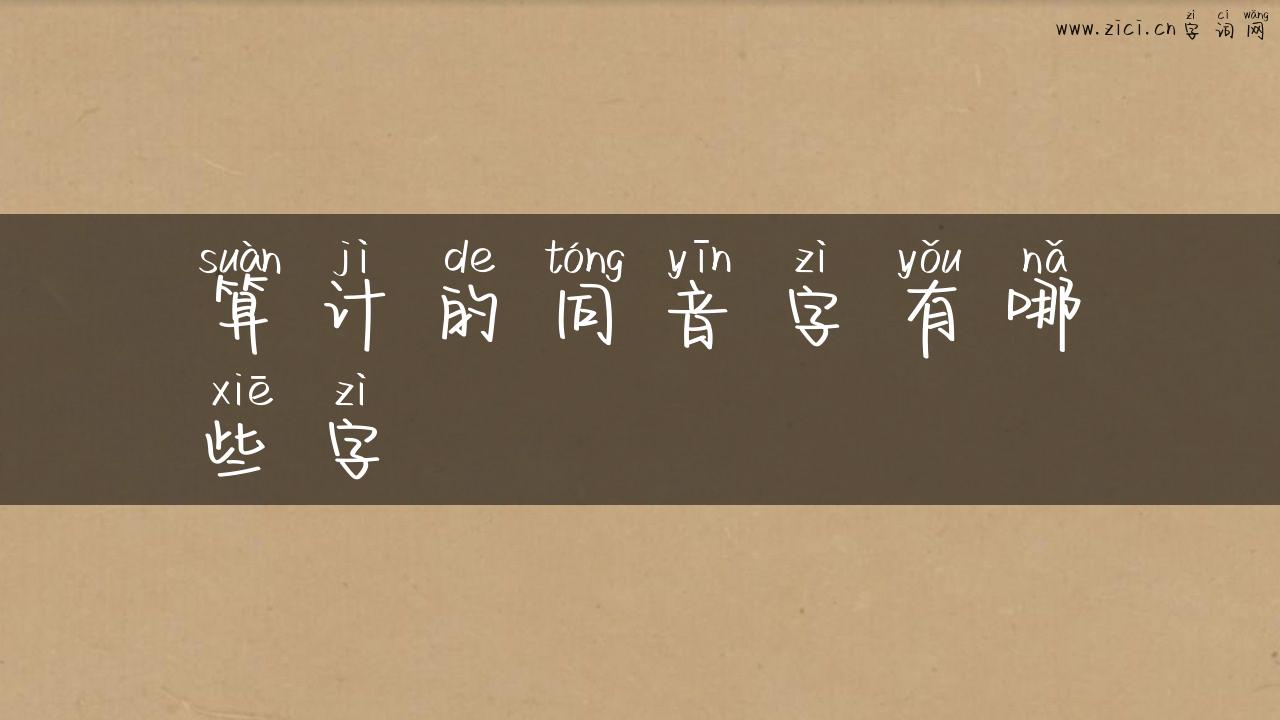 zì cí wǎng
www.zici.cn 字 词 网
suàn jì de tóng yīn zì yǒu nǎ
算 计 的 同 音 字 有 哪
xiē zì
些 字